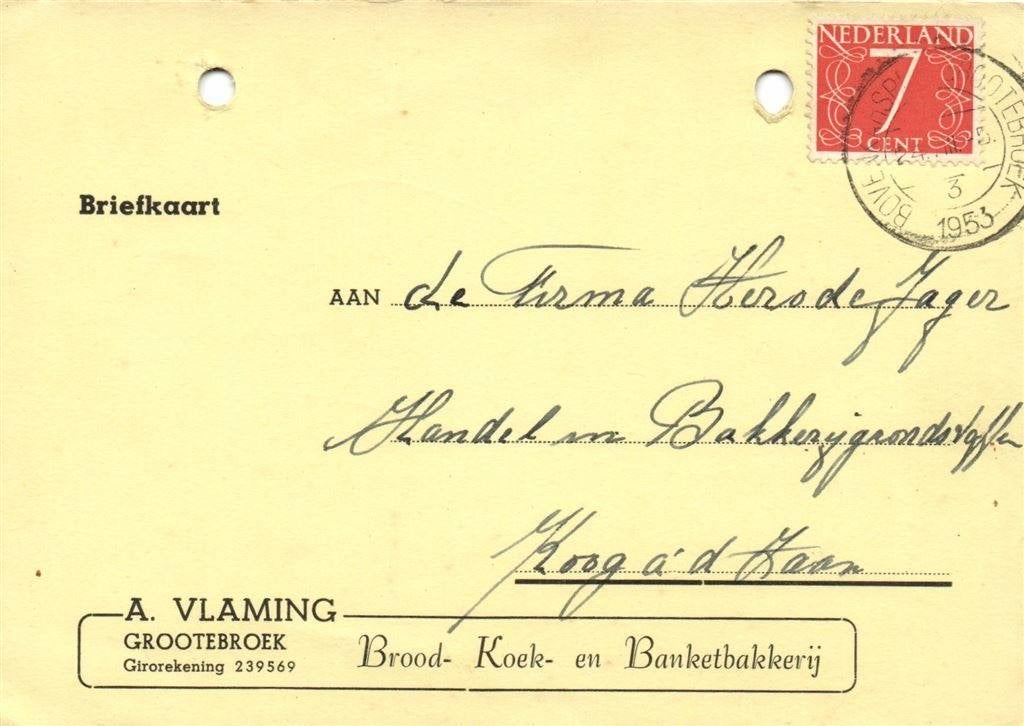 NEDERLAND
7
CENT
GROOTEBROEK
3
1953
Briefkaart
AAN de Firma Hero de Jager
Handel in Bakkerijgrondstoffen
Koog a' d Zaan
A. VLAMING
GROOTEBROEK
Girorekening 239569
Brood- Koek- en Banketbakkerij